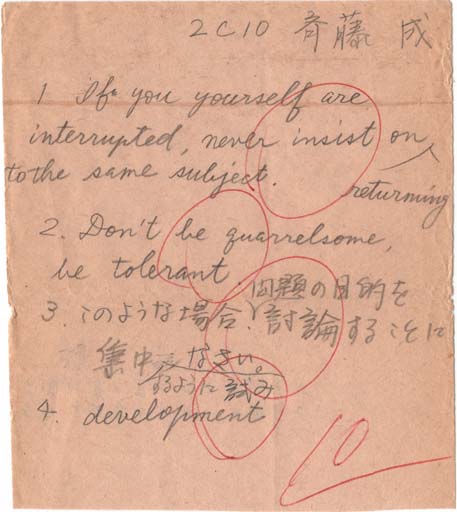 2C10 斉藤 成
1 If you yourself are
interrupted, never insist on
returming
to the same subject.
2. Don't be quarrelsome,
be tolerant.
問題の目的を
3. このような場合、討論することに
集中 なさい。
するように試み
4. development
10